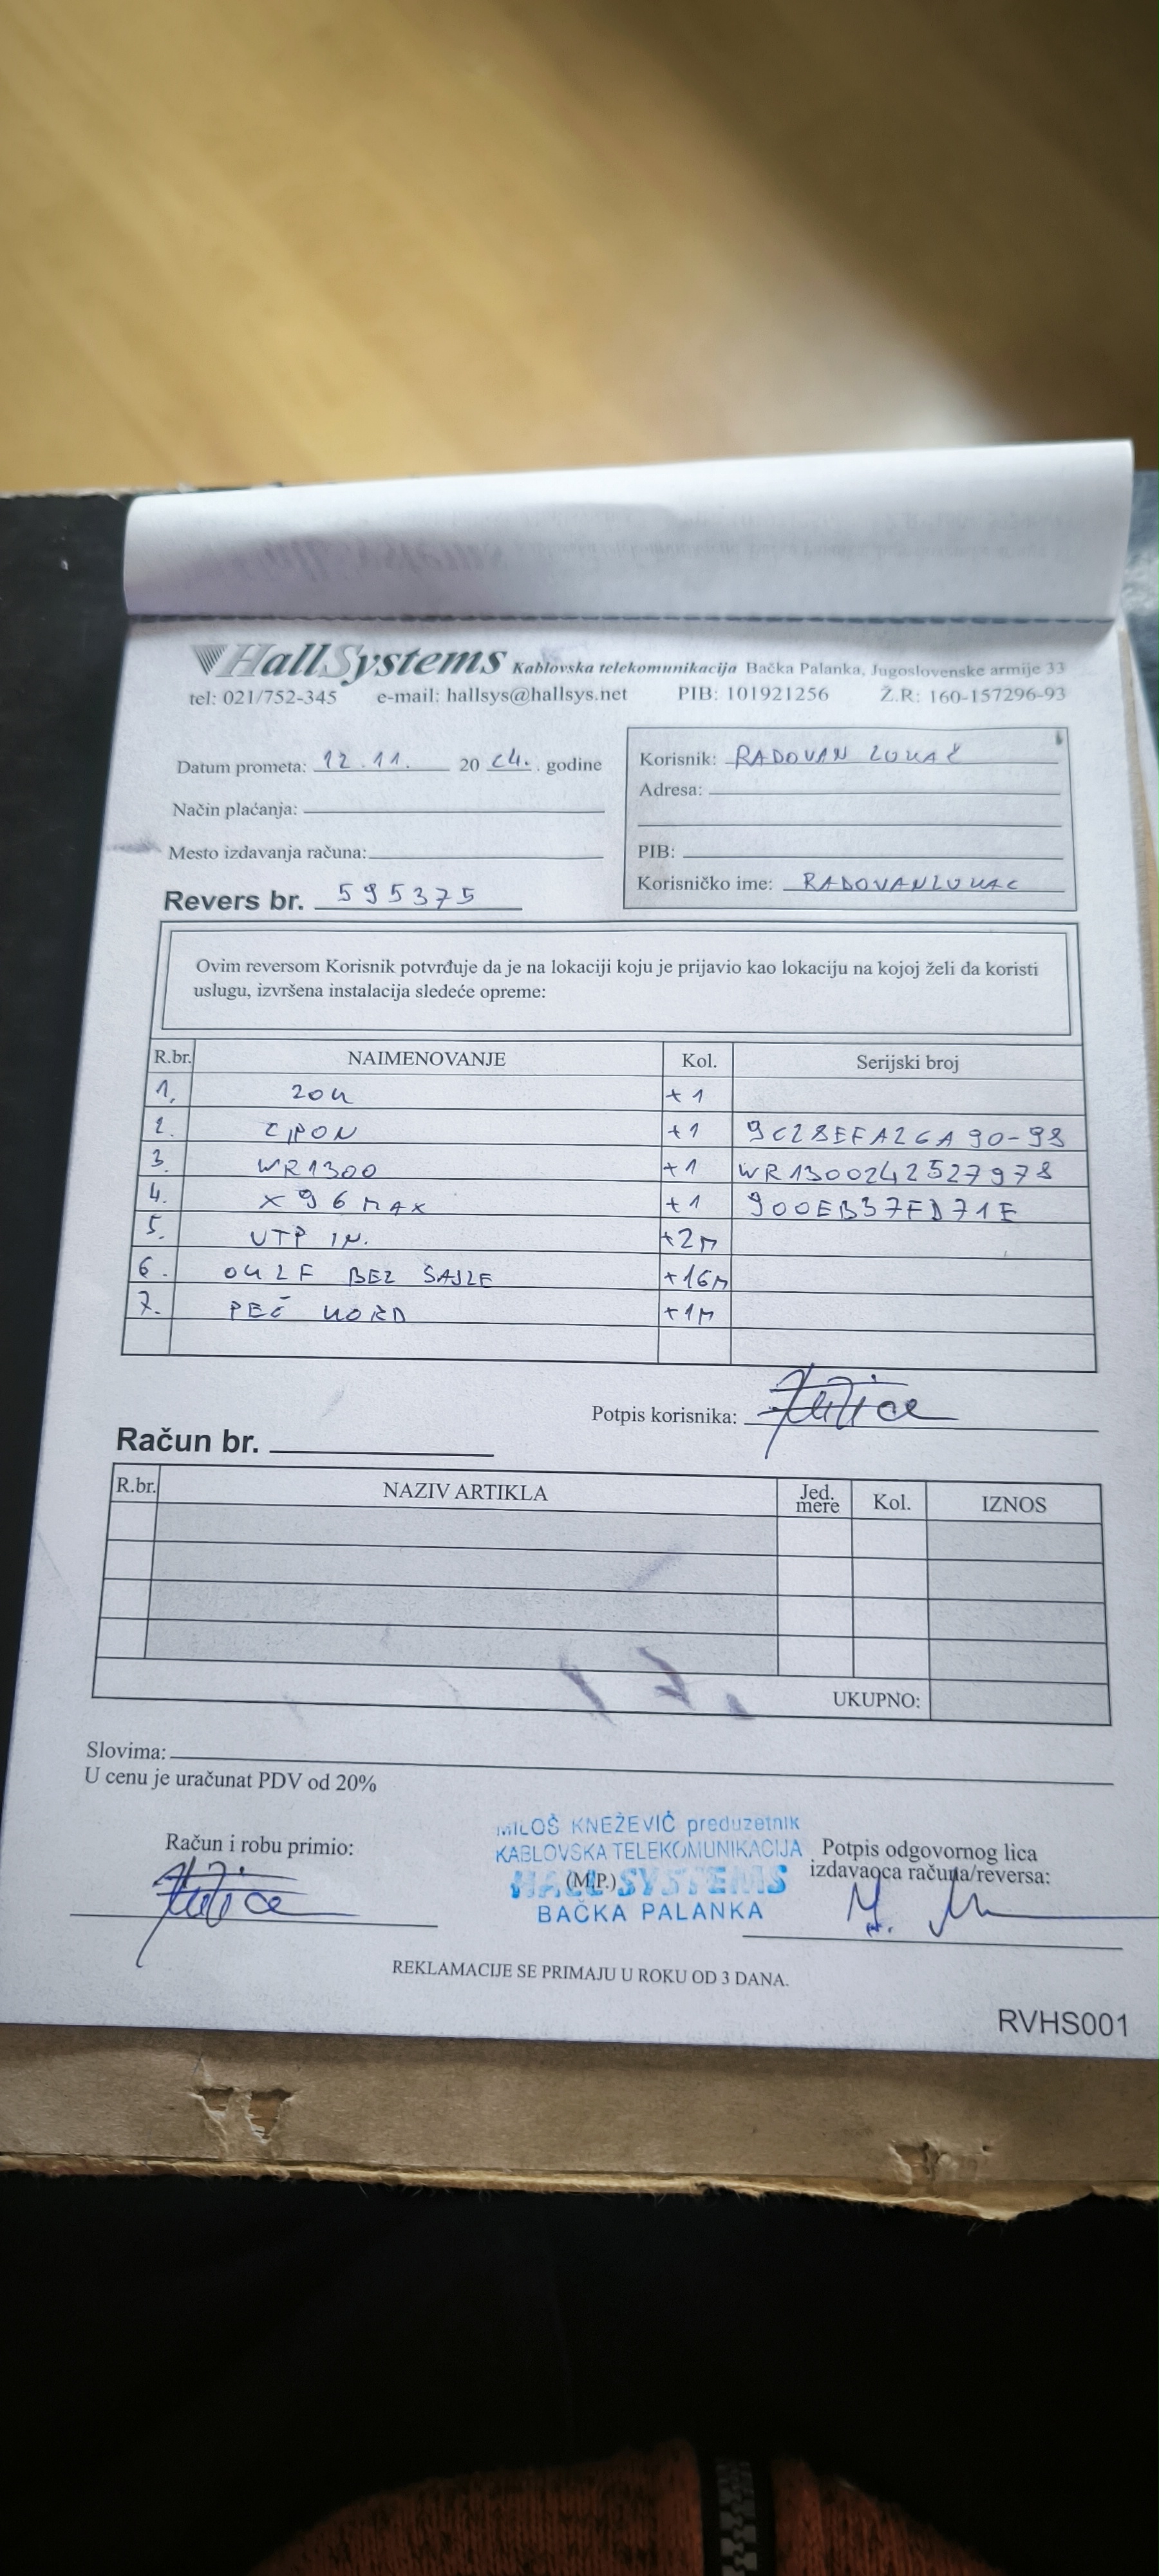 HallSystems Kablovska telekomunikacija Bačka Palanka, Jugoslovenske armije 33
tel: 021/752-345 e-mail: hallsys@hallsys.net PIB: 101921256 Ž.R: 160-157296-93
Datum prometa: 12.11. 20 24. godine
Način plaćanja:
Mesto izdavanja računa:
Revers br. 595375
Korisnik: RADOVAN LUKAČ
Adresa:
PIB:
Korisničko ime: RADOVANLUKAC
Ovim reversom Korisnik potvrđuje da je na lokaciji koju je prijavio kao lokaciju na kojoj želi da koristi
uslugu, izvršena instalacija sledeće opreme:
R.br. NAIMENOVANJE Kol. Serijski broj
1. +1
2. +1 9C28EFA26A90-98
3. WR1300 +1 WR1300242527978
4. X96MAX +1 900EB37FD71E
5. UTP IN. +2M
6. BEZ SAJLE +16M
7. +1M
Potpis korisnika:
Račun br.
R.br. NAZIV ARTIKLA Jed. mere Kol. IZNOS
UKUPNO:
Slovima:
U cenu je uračunat PDV od 20%
Račun i robu primio:
MILOŠ KNEŽEVIĆ preduzetnik
KABLOVSKA TELEKOMUNIKACIJA
(M.P.) HALL SYSTEMS
BAČKA PALANKA
Potpis odgovornog lica
izdavaoca računa/reversa:
REKLAMACIJE SE PRIMAJU U ROKU OD 3 DANA.
RVHS001